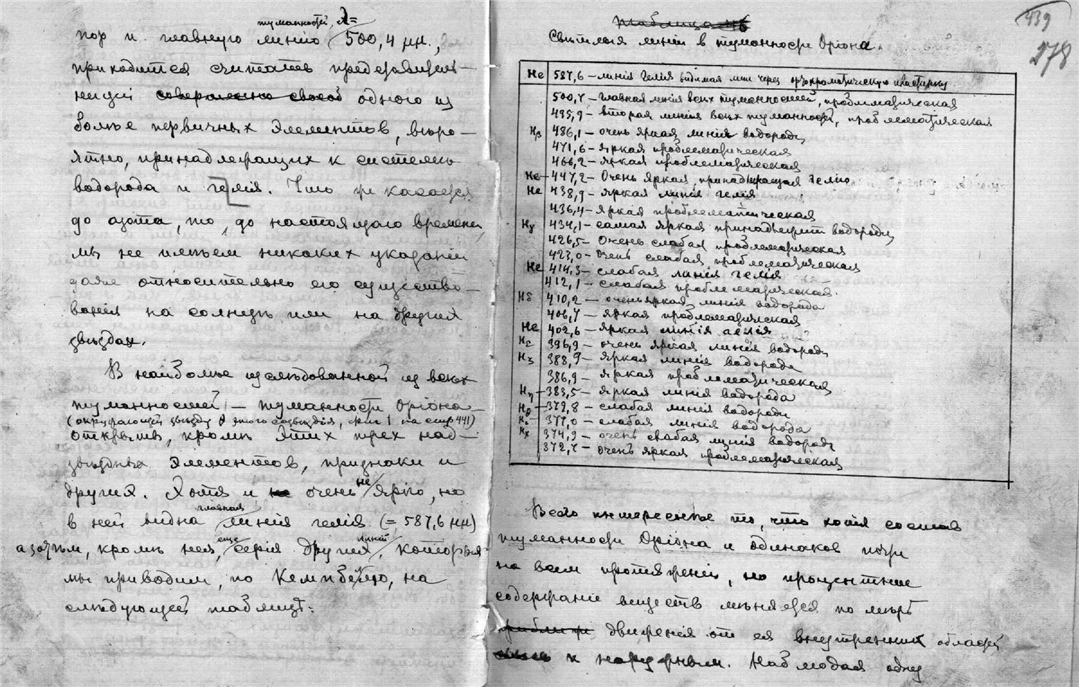 туманностей, λ=
пор и главную линию 500,4 μμ.,
приходится считать представитель-
ницей совершенно своей одного из
более первичных элементов, веро-
ятно, принадлежащих к системѣ
водорода и гелія. Что же касается
до азота, то, до настоящаго времени
мы не имѣем никаких указаній
даже относительно его существо-
ванія на солнцѣ или на других
звѣздах.
В наиболѣе изслѣдованной из всѣх
туманностей – туманности Оріона
(окружающей звѣзду θ этого созвѣздія, на стр 441)
открыты, кромѣ этих трех над-
звѣздных элементов, признаки и
других. Хотя и не очень ярко, но
главная
в ней видна линія гелія (= 587,6 μμ)
еще линій
а затѣм, кромѣ нея, серія других, которыя
мы приводим, по Кемпбелю, на
слѣдующей таблицѣ:
439
278
Таблица
Свѣтлыя линіи в туманности Оріона.
He 587,6 – линія гелія видимая мин через ортохроматическую пластинку
500,4 – главная линія всѣх туманностей, проблематическая
495,9 – вторая линія всѣх туманностей, проблематическая
Hβ 486,1 – очень яркая линія водорода
471,6 – яркая проблематическая
466,2 – яркая проблематическая
He 447,2 – Очень яркая, принадлежащая гелію
He 438,9 – яркая линія гелія
436,4 – яркая проблематическая
Hγ 434,1 – самая яркая принадлежит водороду
426,5 – Очень слабая проблематическая
423,0 – Очень слабая проблематическая
He 414,3 – слабая линія гелія
412,1 – слабая проблематическая.
Hδ 410,2 – очень яркая линія водорода
406,7 – яркая проблематическая
He 402,6 – яркая линія гелія
Hε 396,9 – очень яркая линія водорода
Hζ 388,9 – яркая линія водорода
386,9 – яркая проблематическая
Hη 383,5 – яркая линія водорода
Hθ 379,8 – слабая линія водорода
Hι 377,0 – слабая линія водорода
Hκ 374,9 – очень слабая линія водорода
372,7 – очень яркая проблематическая
Всего интереснѣе то, что хотя состав
туманности Оріона и одинаков почти
на всем протяженіи, но процентное
содержаніе веществ мѣняется по мѣрѣ
движенія от ея внутренних областей
к наружным. Наблюдая одну